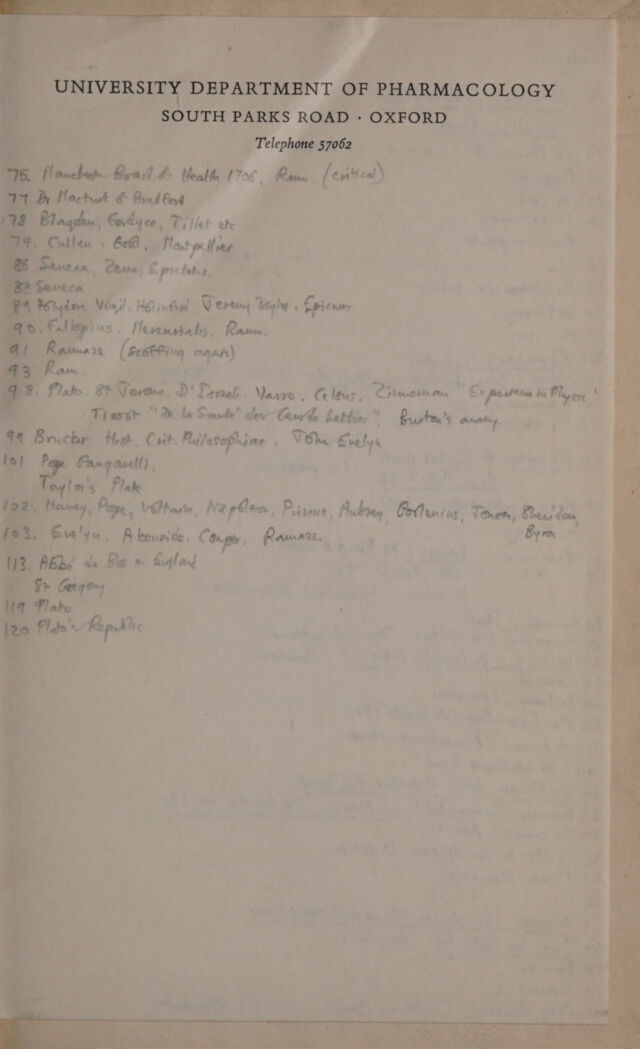 UNIVERSITY DEPARTMENT OF PHARMACOLOGY
SOUTH PARKS ROAD · OXFORD
Telephone 57062
75. Board of Health 1706, Ram. (critical)
77 Dr of Bradford
78 Blagden, Fordyce, Tillet etc
79. Cullen. Montpellier
86 Seneca, Zeno, Epictetus.
88 Seneca
89 Polydore Virgil. Holinshed Jeremy Taylor. Epicurus
90. Fallopius. Mercurialis. Ramm.
91 Ramazz (scoffing again)
93 Ram.
98. Plato. St Jerome, D'Israeli. Varro. Celsus. Zimmerman "Experience in Physic"
Tissot "De la Santé des Gens de Lettres". Burton's anatomy.
99 Brucker Hist. Crit. Philosophiae. John Evelyn
101 Pope Ganganelli,
Taylor's Plato
102. Harvey, Pope, Voltaire, Napoleon, Aubrey, Sheridan,
Byron
103. Evelyn. Akenside. Cowper, Ramazz.
113. Abbé du Bos on England
St Gregory.
119 Plato
120 Plato's Republic